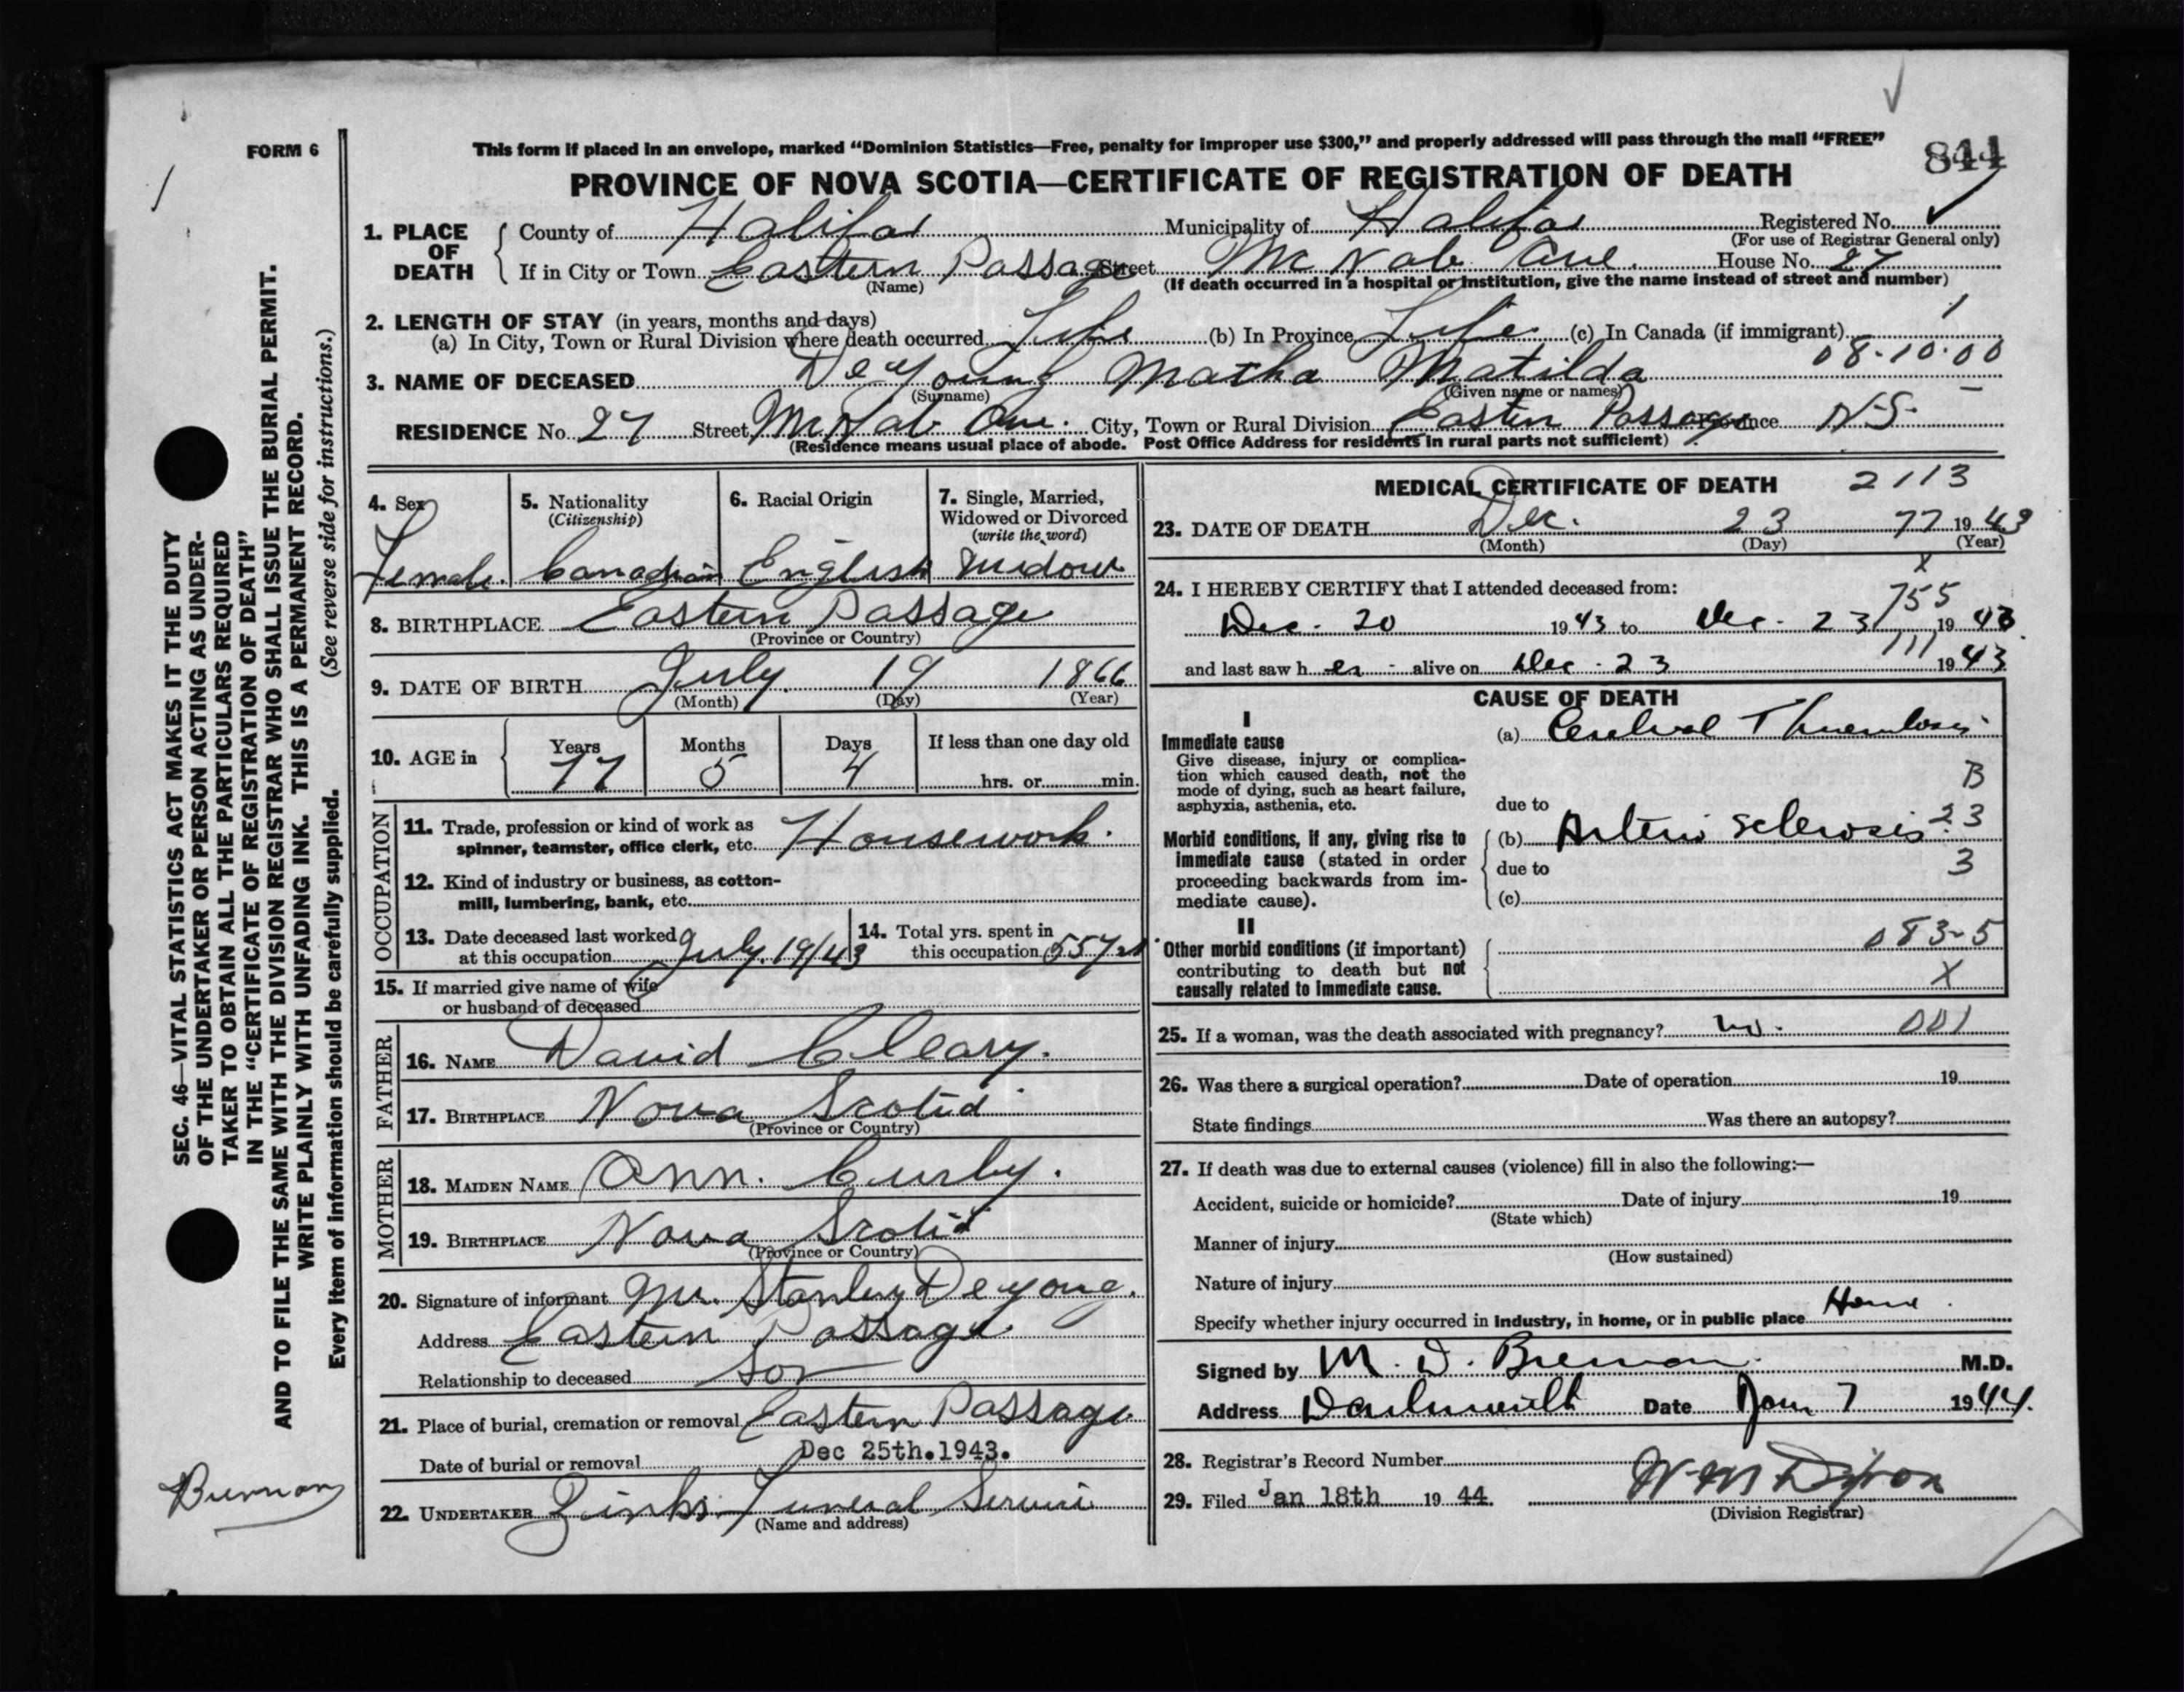 FORM 6
This form if placed in an envelope, marked "Dominion Statistics—Free, penalty for improper use $300," and properly addressed will pass through the mail "FREE"
844
PROVINCE OF NOVA SCOTIA—CERTIFICATE OF REGISTRATION OF DEATH
1. PLACE OF DEATH
County of Halifax Municipality of Halifax Registered No.
(For use of Registrar General only)
If in City or Town Eastern Passage Street McNab Ave. House No. 27
(Name) (If death occurred in a hospital or institution, give the name instead of street and number)
2. LENGTH OF STAY (in years, months and days)
(a) In City, Town or Rural Division where death occurred Life (b) In Province Life (c) In Canada (if immigrant)
08-10-00
3. NAME OF DECEASED DeYoung Matha Matilda
(Surname) (Given name or names)
RESIDENCE No. 27 Street McNab Ave. City, Town or Rural Division Eastern Passage Province N.S.
(Residence means usual place of abode. Post Office Address for residents in rural parts not sufficient)
4. Sex Female
5. Nationality (Citizenship) Canadian
6. Racial Origin English
7. Single, Married, Widowed or Divorced (write the word) Widow
8. BIRTHPLACE Eastern Passage
(Province or Country)
9. DATE OF BIRTH July 19 1866
(Month) (Day) (Year)
10. AGE in Years 77 Months 5 Days 4 If less than one day old hrs. or min.
OCCUPATION
11. Trade, profession or kind of work as spinner, teamster, office clerk, etc. Housework.
12. Kind of industry or business, as cotton-mill, lumbering, bank, etc.
13. Date deceased last worked at this occupation July 19/43
14. Total yrs. spent in this occupation 55 yrs
15. If married give name of wife or husband of deceased
FATHER
16. NAME David Cleary.
17. BIRTHPLACE Nova Scotia
(Province or Country)
MOTHER
18. MAIDEN NAME Ann. Curly.
19. BIRTHPLACE Nova Scotia
(Province or Country)
20. Signature of informant Mr. Stanley Deyoung.
Address Eastern Passage
Relationship to deceased Son
21. Place of burial, cremation or removal Eastern Passage
Date of burial or removal Dec 25th.1943.
22. UNDERTAKER Zinks Funeral Service
(Name and address)
MEDICAL CERTIFICATE OF DEATH 2113
23. DATE OF DEATH Dec. 23 77 1943
(Month) (Day) (Year)
X
24. I HEREBY CERTIFY that I attended deceased from:
755
Dec. 20 1943 to Dec. 23 1943
111
and last saw her alive on Dec. 23 1943
CAUSE OF DEATH
I
Immediate cause
Give disease, injury or complication which caused death, not the mode of dying, such as heart failure, asphyxia, asthenia, etc.
(a) Cerebral Thrombosis
B
due to
Morbid conditions, if any, giving rise to immediate cause (stated in order proceeding backwards from immediate cause).
(b) Arterio sclerosis 23
due to 3
(c)
II
Other morbid conditions (if important) contributing to death but not causally related to immediate cause.
083-5
X
25. If a woman, was the death associated with pregnancy? no. 001
26. Was there a surgical operation? Date of operation 19
State findings Was there an autopsy?
27. If death was due to external causes (violence) fill in also the following:—
Accident, suicide or homicide? Date of injury 19
(State which)
Manner of injury
(How sustained)
Nature of injury
Specify whether injury occurred in industry, in home, or in public place Home.
Signed by M. D. Brennan M.D.
Address Dartmouth Date Jan 7 1944.
28. Registrar's Record Number
29. Filed Jan 18th 1944.
(Division Registrar)
SEC. 46—VITAL STATISTICS ACT MAKES IT THE DUTY
OF THE UNDERTAKER OR PERSON ACTING AS UNDER-
TAKER TO OBTAIN ALL THE PARTICULARS REQUIRED
IN THE "CERTIFICATE OF REGISTRATION OF DEATH"
AND TO FILE THE SAME WITH THE DIVISION REGISTRAR WHO SHALL ISSUE THE BURIAL PERMIT.
WRITE PLAINLY WITH UNFADING INK. THIS IS A PERMANENT RECORD.
Every item of information should be carefully supplied. (See reverse side for instructions.)
Brennan